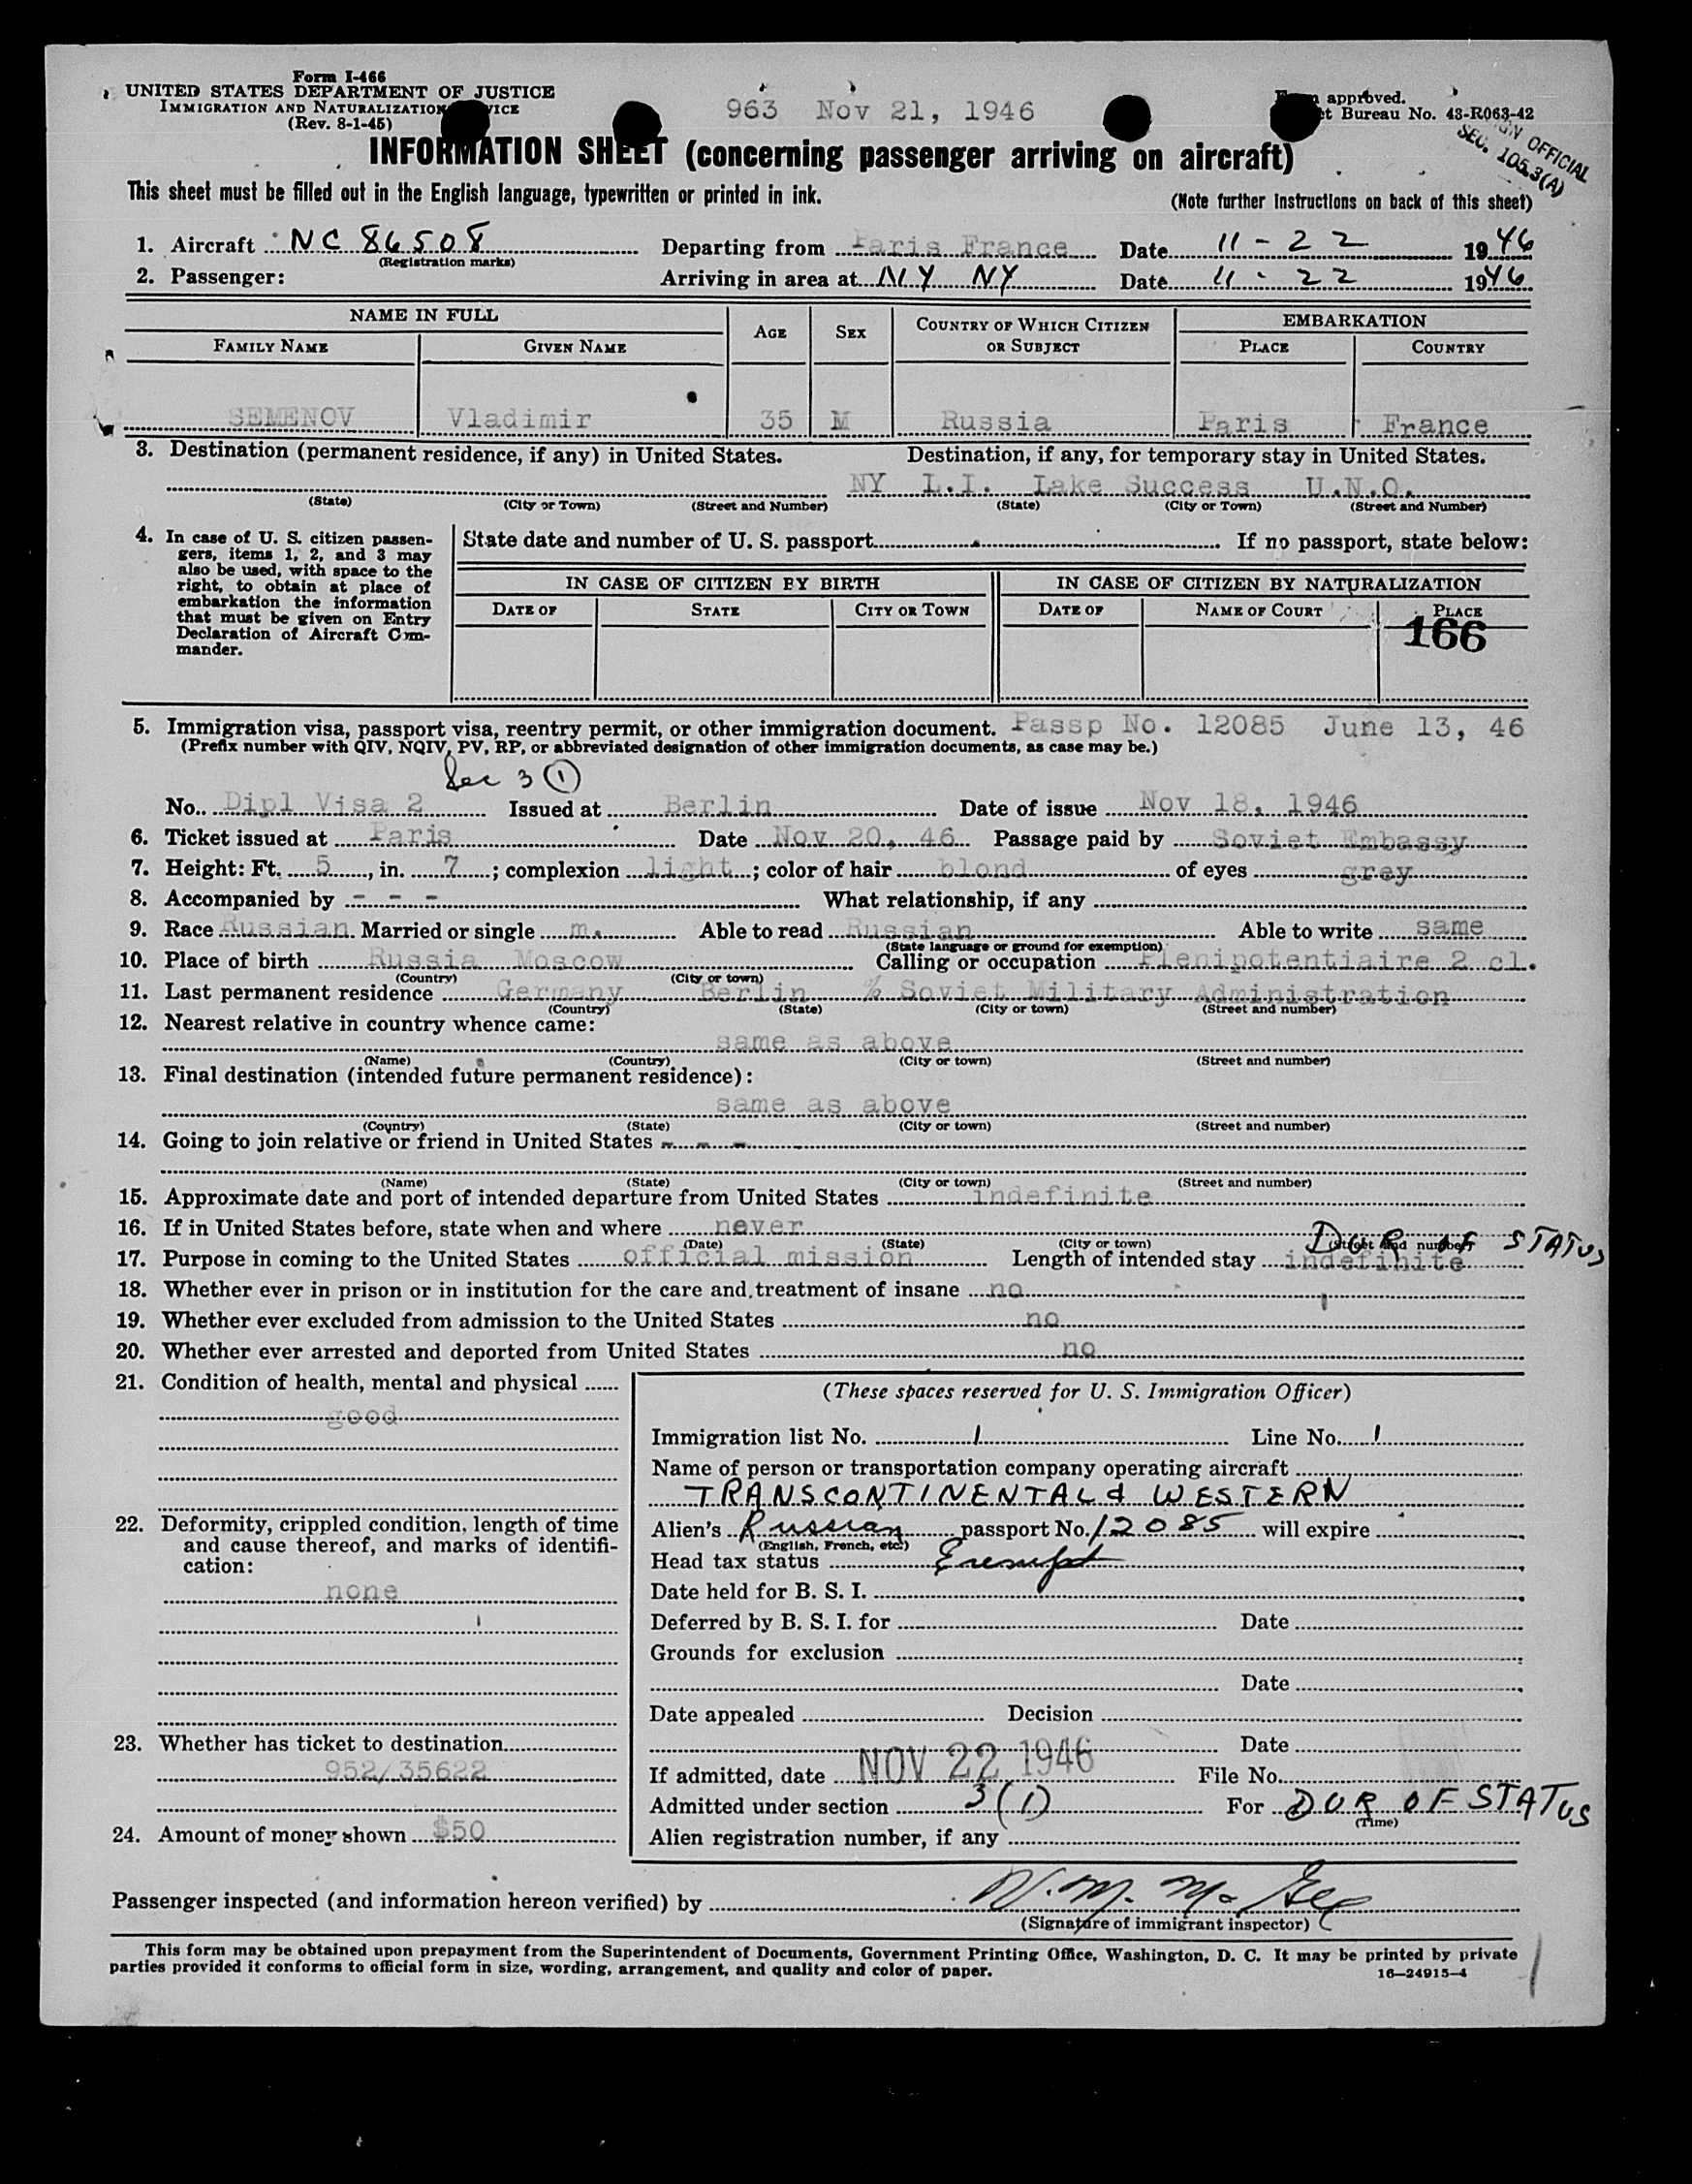 Form I-466
UNITED STATES DEPARTMENT OF JUSTICE
IMMIGRATION AND NATURALIZATION
(Rev. 8-1-45)
963 Nov 21, 1946
approved.
Bureau No. 43-R063-42
OFFICIAL
SEC. 105.3(A)
INFORMATION SHEET (concerning passenger arriving on aircraft)
This sheet must be filled out in the English language, typewritten or printed in ink.
(Note further instructions on back of this sheet)
1. Aircraft NC 86508 Departing from Paris France Date 11-22 1946
(Registration marks)
2. Passenger: Arriving in area at NY NY Date 11-22 1946
NAME IN FULL AGE SEX COUNTRY OF WHICH CITIZEN OR SUBJECT EMBARKATION
FAMILY NAME GIVEN NAME PLACE COUNTRY
SEMENOV Vladimir 35 M Russia Paris France
3. Destination (permanent residence, if any) in United States. Destination, if any, for temporary stay in United States.
NY L.I. Lake Success U.N.O.
(State) (City or Town) (Street and Number) (State) (City or Town) (Street and Number)
4. In case of U. S. citizen passen-
gers, items 1, 2, and 3 may
also be used, with space to the
right, to obtain at place of
embarkation the information
that must be given on Entry
Declaration of Aircraft Com-
mander.
State date and number of U. S. passport If no passport, state below:
IN CASE OF CITIZEN BY BIRTH IN CASE OF CITIZEN BY NATURALIZATION
DATE OF STATE CITY OR TOWN DATE OF NAME OF COURT PLACE
166
5. Immigration visa, passport visa, reentry permit, or other immigration document. Passp No. 12085 June 13, 46
(Prefix number with QIV, NQIV, PV, RP, or abbreviated designation of other immigration documents, as case may be.)
Sec 3 (1)
No. Dipl Visa 2 Issued at Berlin Date of issue Nov 18, 1946
6. Ticket issued at Paris Date Nov 20, 46 Passage paid by Soviet Embassy
7. Height: Ft. 5, in. 7; complexion light; color of hair blond of eyes grey
8. Accompanied by - - - What relationship, if any
9. Race Russian Married or single m. Able to read Russian Able to write same
(State language or ground for exemption)
10. Place of birth Russia Moscow Calling or occupation Plenipotentiaire 2 cl.
(Country) (City or town)
11. Last permanent residence Germany Berlin % Soviet Military Administration
(Country) (State) (City or town) (Street and number)
12. Nearest relative in country whence came:
same as above
(Name) (Country) (City or town) (Street and number)
13. Final destination (intended future permanent residence):
same as above
(Country) (State) (City or town) (Street and number)
14. Going to join relative or friend in United States - - -
(Name) (State) (City or town) (Street and number)
15. Approximate date and port of intended departure from United States indefinite
16. If in United States before, state when and where never
(Date) (State) (City or town) (Street and number)
DUR OF STATUS
17. Purpose in coming to the United States official mission Length of intended stay indefinite
18. Whether ever in prison or in institution for the care and treatment of insane no
19. Whether ever excluded from admission to the United States no
20. Whether ever arrested and deported from United States no
21. Condition of health, mental and physical
good
22. Deformity, crippled condition, length of time
and cause thereof, and marks of identifi-
cation:
none
23. Whether has ticket to destination
952/35622
24. Amount of money shown $50
(These spaces reserved for U. S. Immigration Officer)
Immigration list No. 1 Line No. 1
Name of person or transportation company operating aircraft
TRANSCONTINENTAL & WESTERN
Alien's Russian passport No. 12085 will expire
(English, French, etc.)
Head tax status Exempt
Date held for B. S. I.
Deferred by B. S. I. for Date
Grounds for exclusion
Date
Date appealed Decision
Date
If admitted, date NOV 22 1946 File No.
Admitted under section 3(1) For DUR OF STATUS
(Time)
Alien registration number, if any
Passenger inspected (and information hereon verified) by
(Signature of immigrant inspector)
This form may be obtained upon prepayment from the Superintendent of Documents, Government Printing Office, Washington, D. C. It may be printed by private
parties provided it conforms to official form in size, wording, arrangement, and quality and color of paper.
16—24915-4